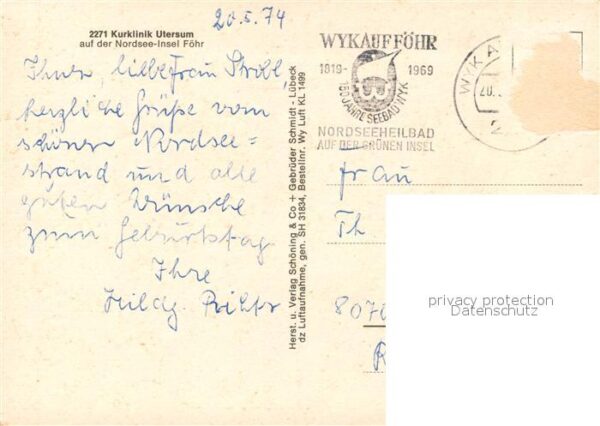 20.5.74
2271 Kurklinik Utersum
auf der Nordsee-Insel Föhr
Ihnen, liebe Frau
herzliche Grüße vom
schönen Nordsee=
strand und alle
guten Wünsche
zum Geburtstag
Ihre
Herst. u. Verlag Schöning & Co + Gebrüder Schmidt - Lübeck
dz Luftaufnahme, gen. SH 31834, Bestellnr. Wy Luft KL 1499
WYK AUF FÖHR
1819- 1969
150 JAHRE SEEBAD WYK
NORDSEEHEILBAD
AUF DER GRÜNEN INSEL
WYK A
20.
2
Frau
Th
8070
R
privacy protection
Datenschutz